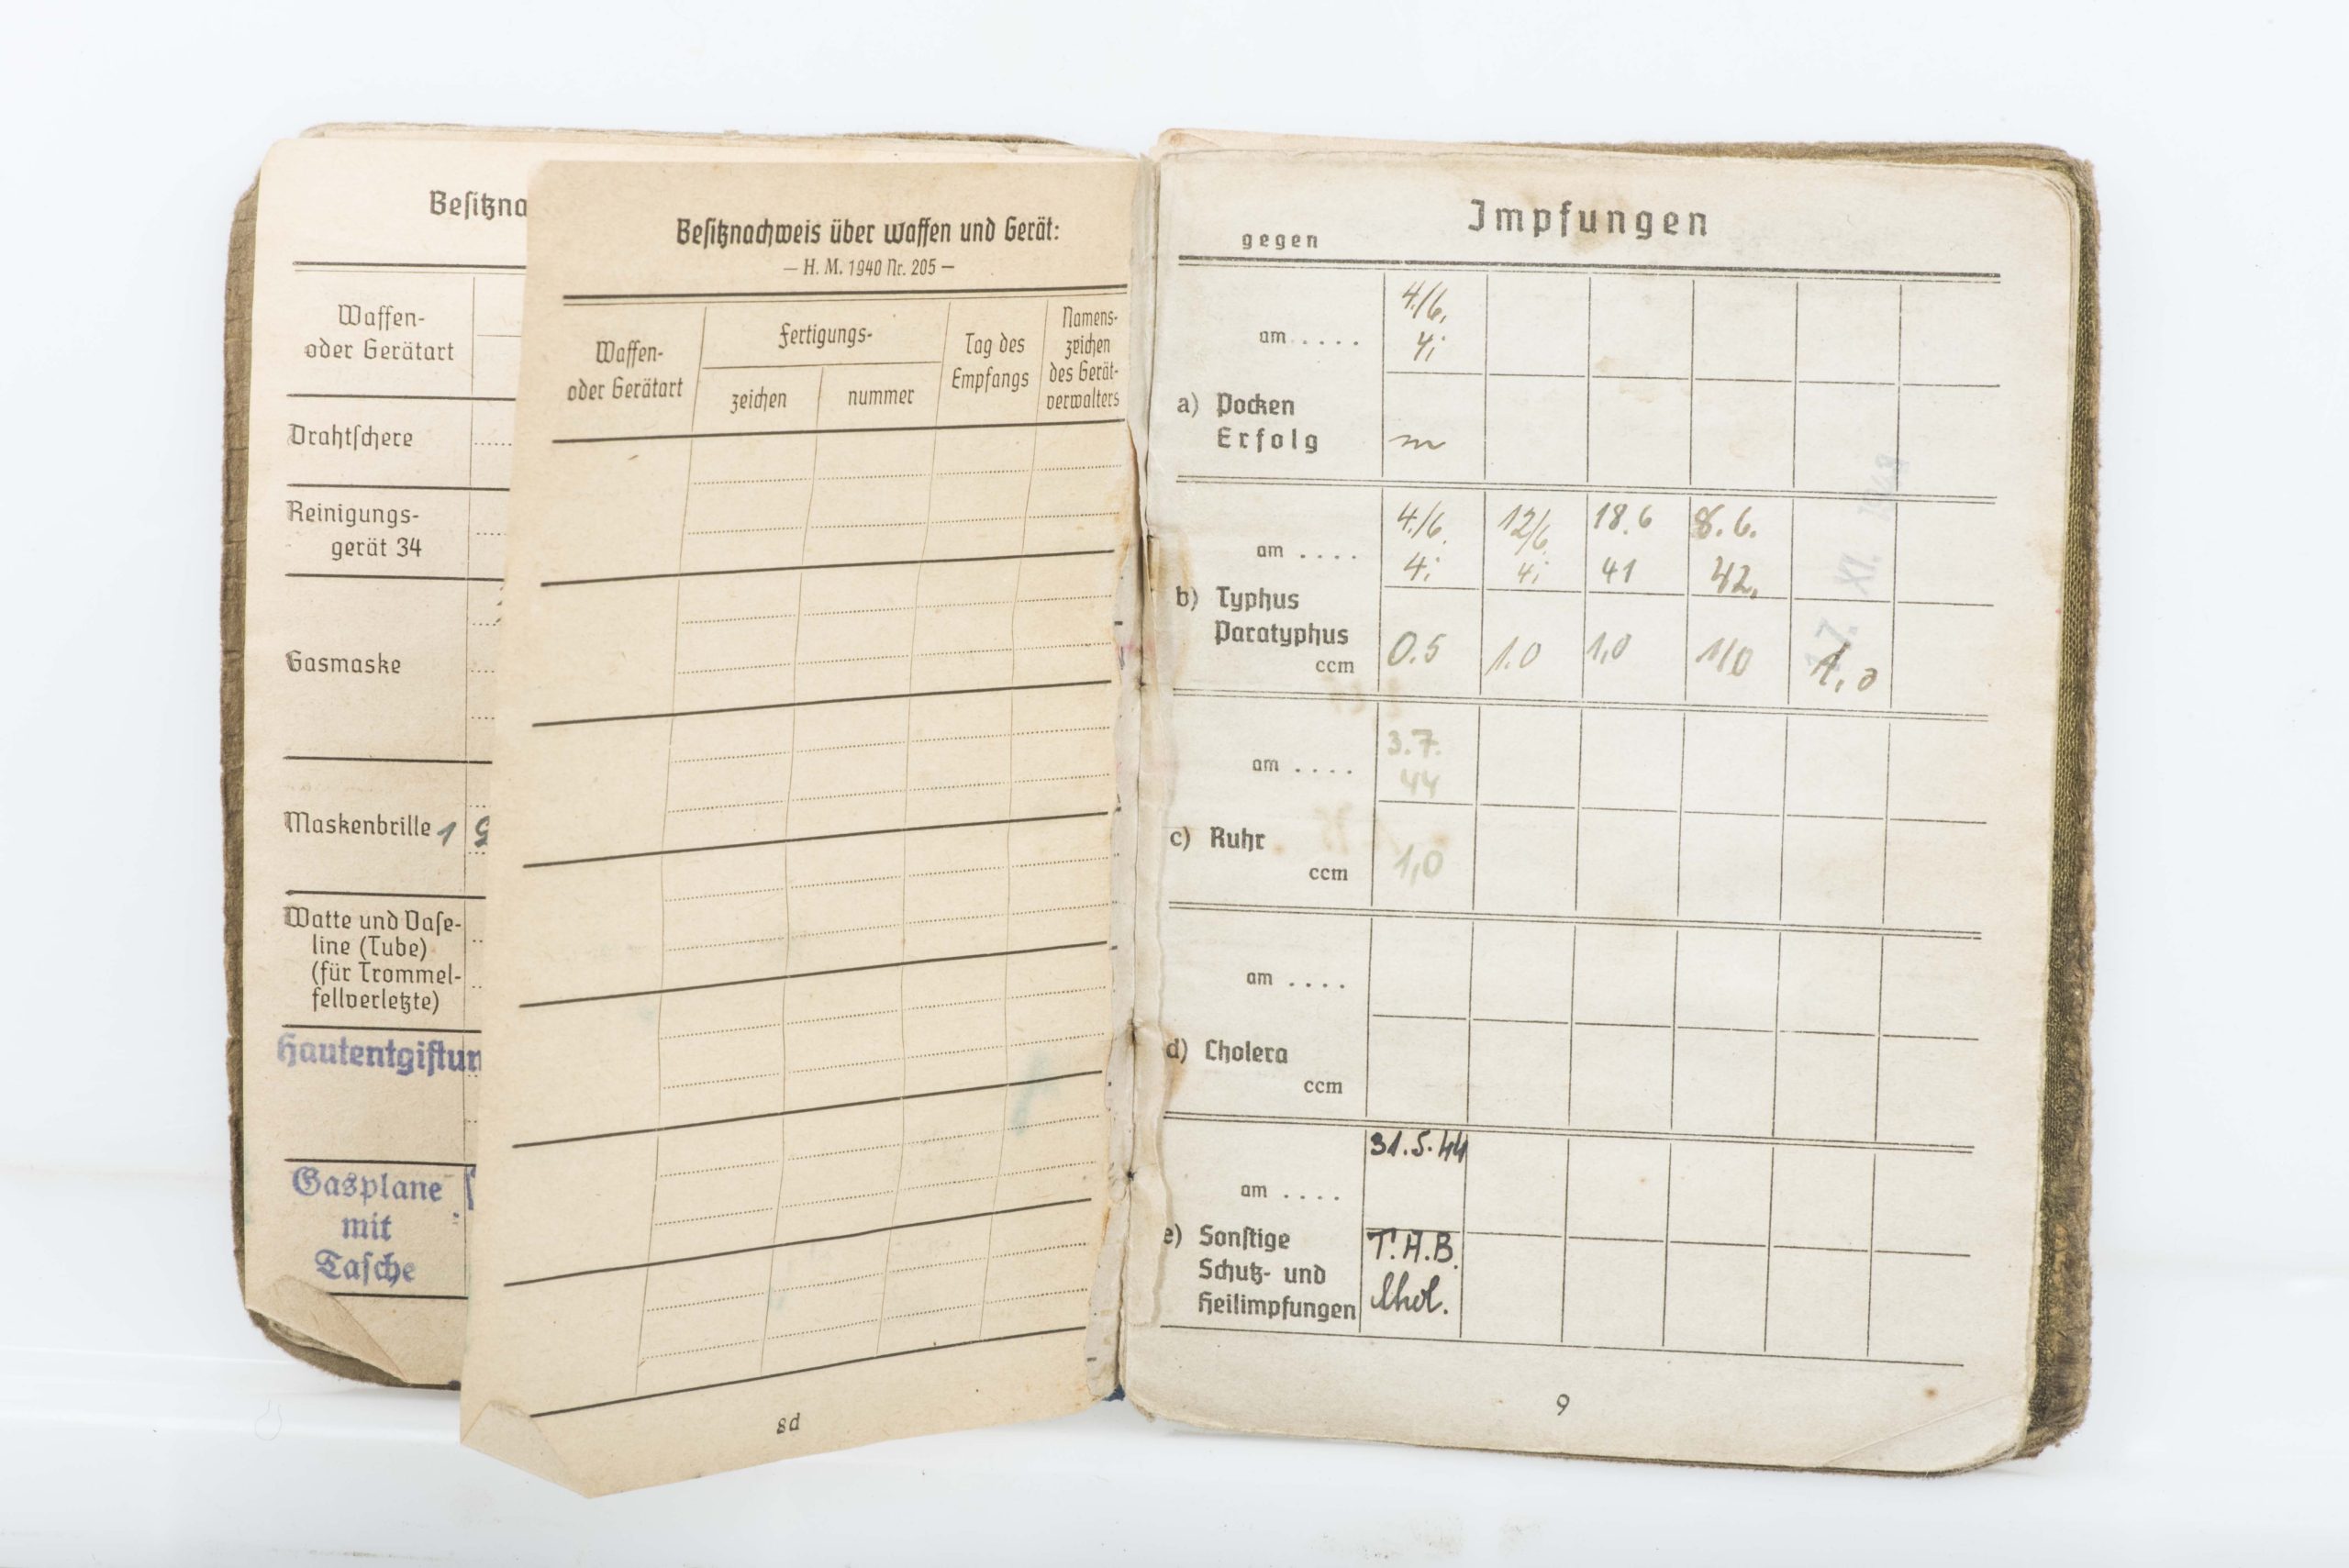 Besitzna
Waffen-
oder Gerätart
Drahtschere
Reinigungs-
gerät 34
Gasmaske
Maskenbrille 1
Watte und Vase-
line (Tube)
(für Trommel-
fellverletzte)
Hautentgiftun
Gasplane
mit
Tasche
Besitznachweis über Waffen und Gerät:
— H. M. 1940 Nr. 205 —
Waffen-
oder Gerätart
Fertigungs-
zeichen
nummer
Tag des
Empfangs
Namens-
zeichen
des Gerät-
verwalters
8d
Impfungen
gegen
am . . . . 4./6.
41
a) Pocken
Erfolg
am . . . . 4./6. 12/6. 18.6 8.6.
41 41 41 42.
b) Typhus
Paratyphus
ccm 0.5 1.0 1,0 1,0 1,0
17. XI.
am . . . . 3.7.
44
c) Ruhr
ccm 1,0
am . . . .
d) Cholera
ccm
31.5.44
am . . . .
e) Sonstige T.A.B.
Schutz- und
Heilimpfungen Chol.
9